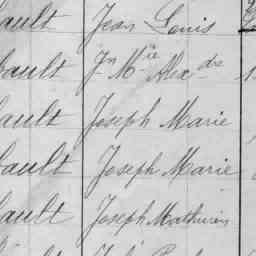 ault Jean Louis
ault Jn Mie Alexdre
ault Joseph Marie
ault Joseph Marie
ault Joseph Mathurin